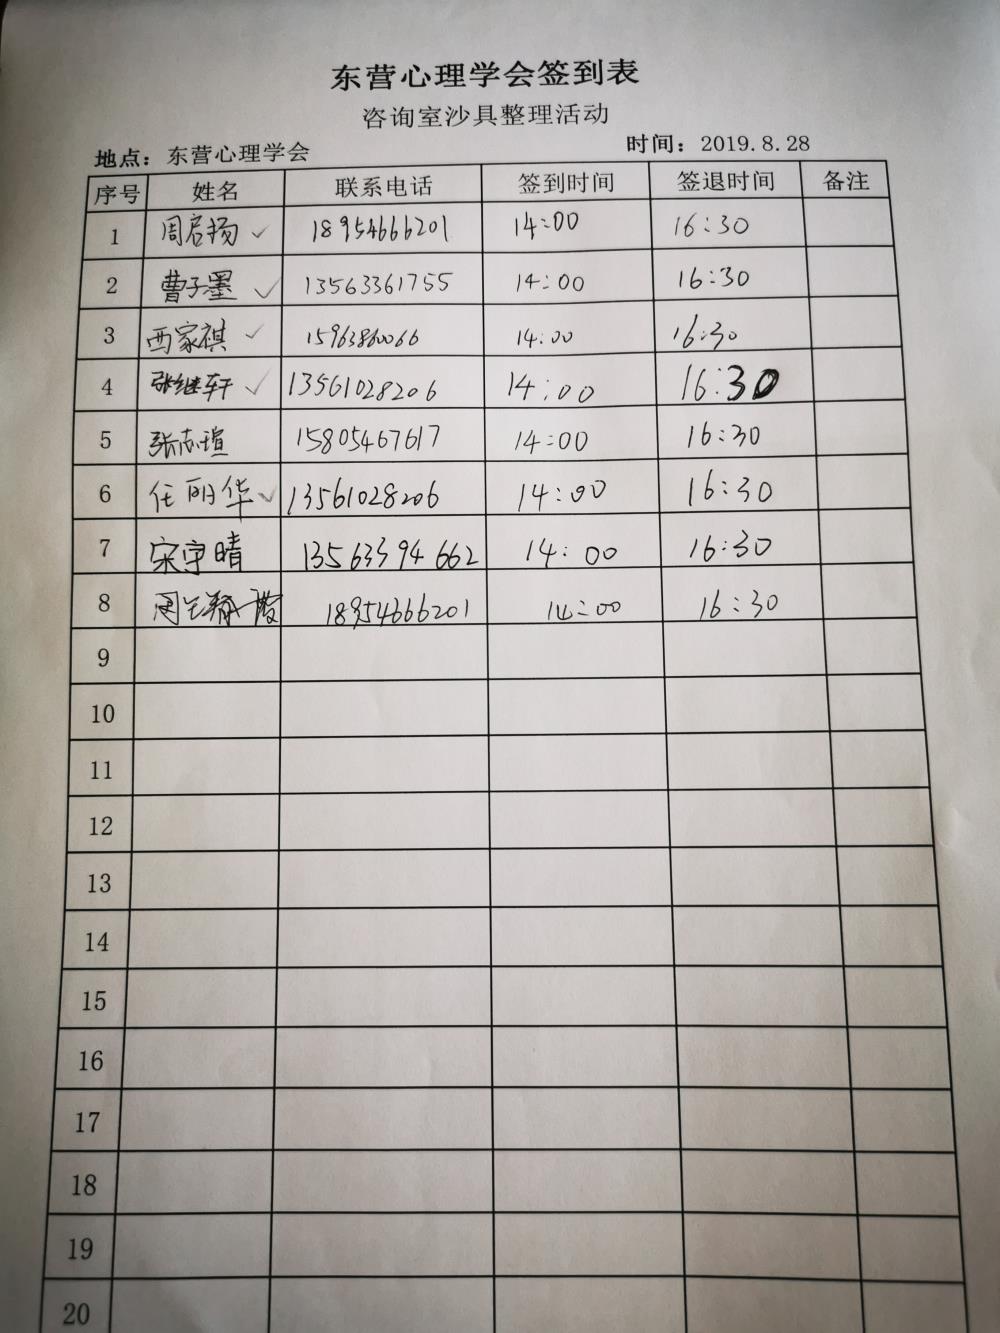 东营心理学会签到表
咨询室沙具整理活动
地点：东营心理学会 时间：2019.8.28
序号 姓名 联系电话 签到时间 签退时间 备注
1 周启扬 ✓ 18954666201 14:00 16:30
2 曹子墨 ✓ 13563361755 14:00 16:30
3 西家祺 ✓ 15963860066 14:00 16:30
4 张继轩 ✓ 13561028206 14:00 16:30
5 张志瑄 15805467617 14:00 16:30
6 任丽华 ✓ 13561028206 14:00 16:30
7 宋宇晴 13563394662 14:00 16:30
8 18954666201 14:00 16:30
9
10
11
12
13
14
15
16
17
18
19
20